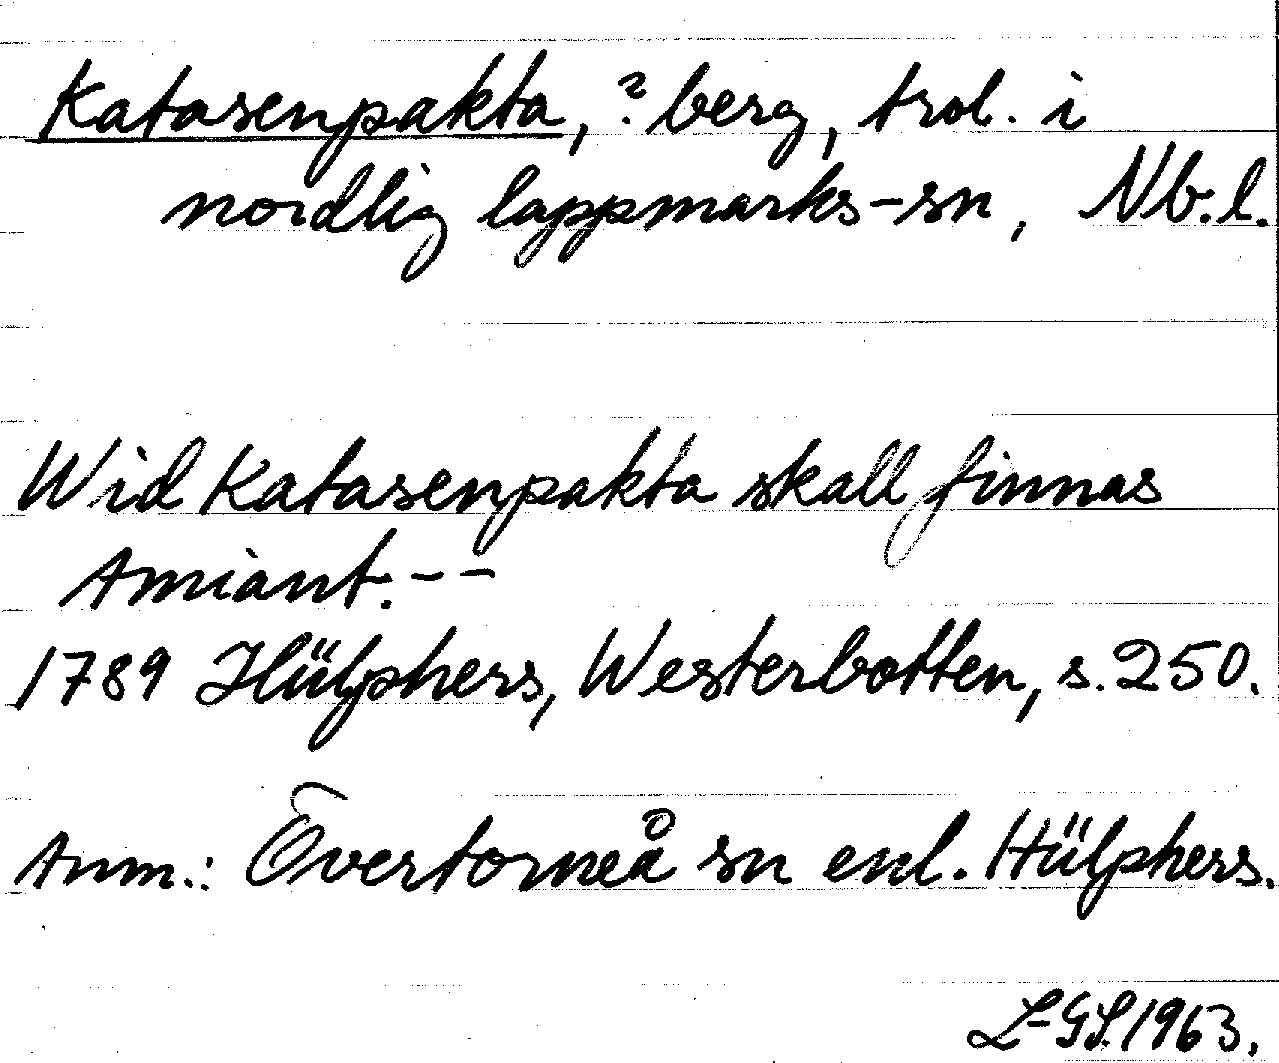 Katasenpakta, ? berg, trol. i
nordlig lappmarks-sn, Nb.l.
Wid Katasenpakta skall finnas
Amiant.--
1789 Hülphers, Westerbotten, s. 250.
Anm.: Övertorneå sn enl. Hülphers.
L-GL.1963.